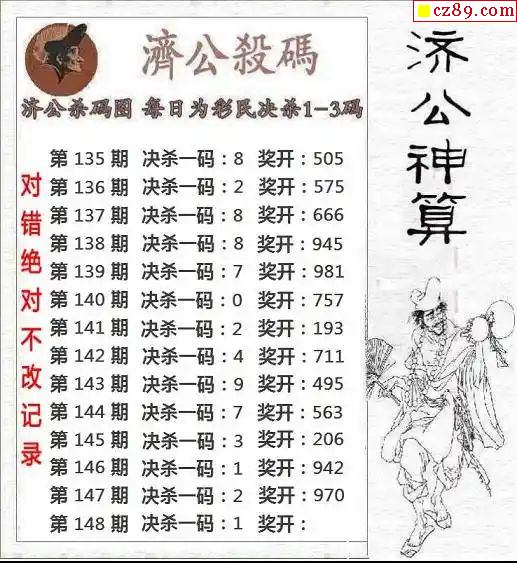 cz89.com
濟公殺碼
济公杀码图 每日为彩民决杀1-3码
第 135 期 决杀一码:8 奖开:505
第 136 期 决杀一码:2 奖开:575
第 137 期 决杀一码:8 奖开:666
第 138 期 决杀一码:8 奖开:945
第 139 期 决杀一码:7 奖开:981
第 140 期 决杀一码:0 奖开:757
第 141 期 决杀一码:2 奖开:193
第 142 期 决杀一码:4 奖开:711
第 143 期 决杀一码:9 奖开:495
第 144 期 决杀一码:7 奖开:563
第 145 期 决杀一码:3 奖开:206
第 146 期 决杀一码:1 奖开:942
第 147 期 决杀一码:2 奖开:970
第 148 期 决杀一码:1 奖开:
对错绝对不改记录
济公神算